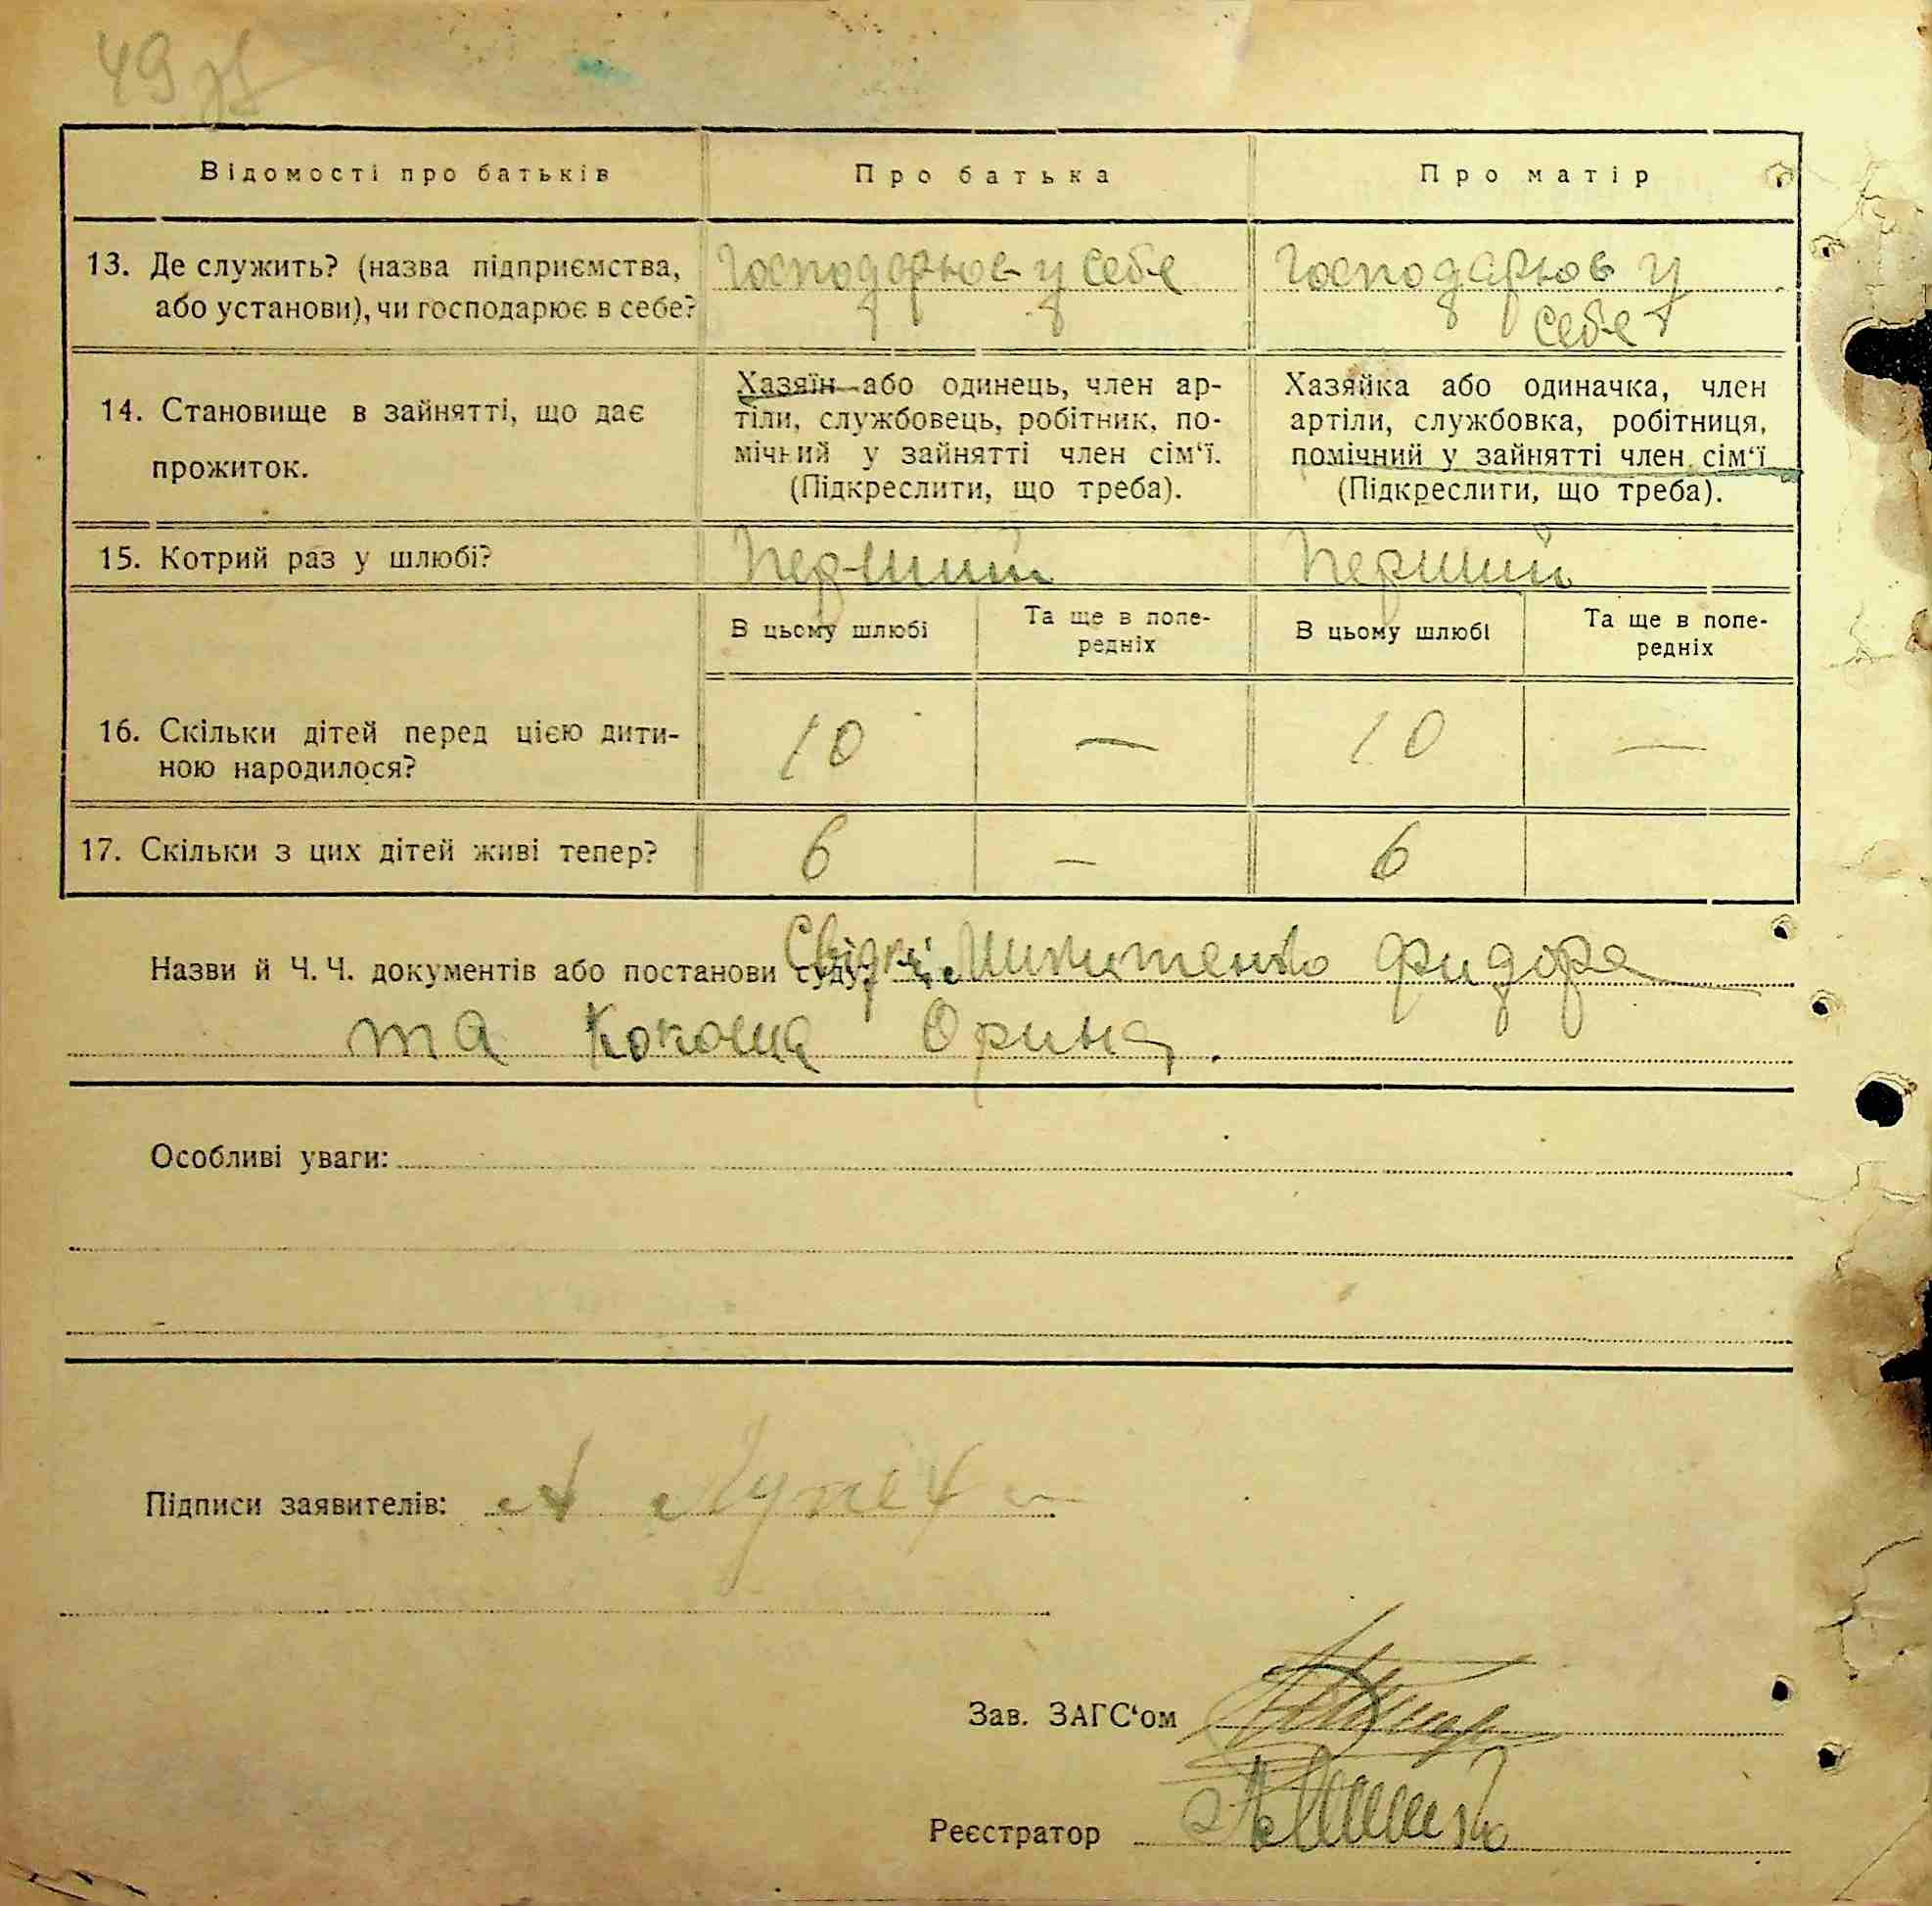 49 зв
Відомості про батьків
Про батька
Про матір
13. Де служить? (назва підприємства,
або установи), чи господарює в себе?
Господарює у себе
Господарює у
себе
14. Становище в зайнятті, що дає
прожиток.
Хазяїн або одинець, член ар-
тіли, службовець, робітник, по-
мічний у зайнятті член сім‘ї.
(Підкреслити, що треба).
Хазяйка або одиначка, член
артіли, службовка, робітниця,
помічний у зайнятті член сім‘ї
(Підкреслити, що треба).
15. Котрий раз у шлюбі?
Перший
Перший
В цьому шлюбі
Та ще в попе-
редніх
В цьому шлюбі
Та ще в попе-
редніх
16. Скільки дітей перед цією дити-
ною народилося?
10 — 10 —
17. Скільки з цих дітей живі тепер?
6 — 6
Назви й Ч. Ч. документів або постанови суду: Свідкі Фидора
та Орина.
Особливі уваги:
Підписи заявителів:
Зав. ЗАГС‘ом
Реєстратор